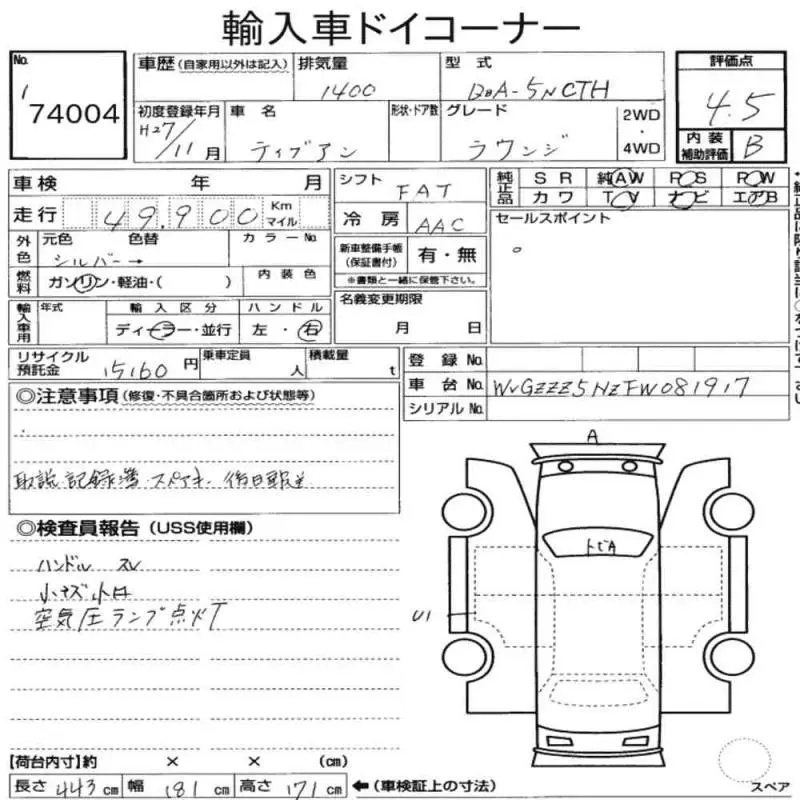 輸入車ドイコーナー
No. 1 74004
車歴 (自家用以外は記入) 排気量 1400 型式 DBA-5NCTH 評価点 4.5
初度登録年月 H27/11月 車名 ティグアン 形状・ドア数 グレード ラウンジ 2WD・4WD 内装補助評価 B
車検 年 月 シフト FAT 純正品 SR 純AW P・S P・W
カワ TV ナビ エアB
走行 49,900 Km マイル 冷房 AAC セールスポイント
外色 元色 色替 カラーNo.
シルバー→
新車整備手帳 (保証書付) 有・無
※書類と一緒に保管下さい。
燃料 ガソリン・軽油・( ) 内装色
名義変更期限 月 日
輸入車用 年式 輸入区分 ディーラー・並行 ハンドル 左・右
リサイクル預託金 15160円 乗車定員 人 積載量 t
登録No.
車台No. WVGZZZ5NZFW081917
シリアルNo.
◎注意事項 (修復・不具合箇所および状態等)
取説 記録簿 スペアキー 後日郵送
A
トビA
U1
◎検査員報告 (USS使用欄)
ハンドル スレ
小キズ小凹
空気圧ランプ点灯
【荷台内寸】約 × × (cm)
長さ 443 cm 幅 181 cm 高さ 171 cm ←(車検証上の寸法)
スペア